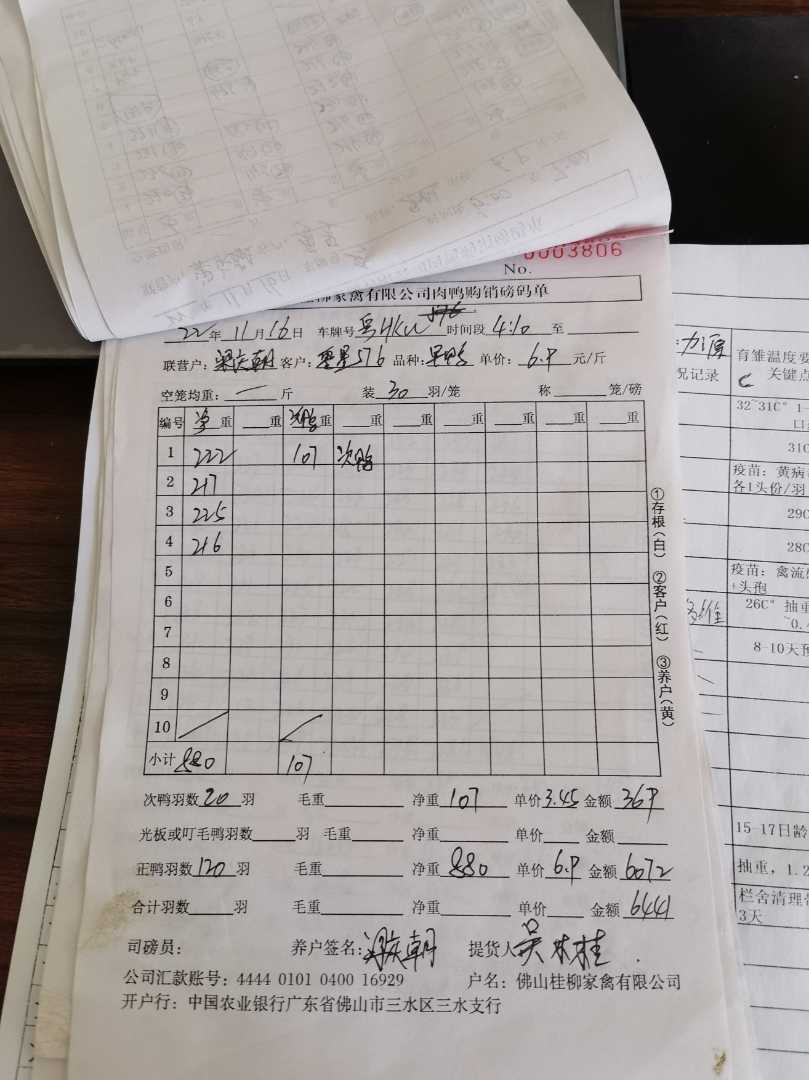 0003806
No.
柳家禽有限公司肉鸭购销磅码单
22年11月16日 车牌号粤HKW 576 时间段4:10至
联营户:梁庆朝 客户:576 品种:旱鸭 单价:6.9元/斤
空笼均重:一斤 装30羽/笼 称 笼/磅
编号 净重 重 次鸭重 重 重 重 重 重 重
1 222 107 次鸭
2 217
3 225
4 216
5
6
7
8
9
10
小计 880 107
次鸭羽数20羽 毛重 净重107 单价3.45 金额369
光板或叮毛鸭羽数 羽 毛重 净重 单价 金额
正鸭羽数120羽 毛重 净重880 单价6.9 金额6072
合计羽数 羽 毛重 净重 单价 金额6441
司磅员: 养户签名:梁庆朝 提货人吴木桂
公司汇款账号:4444 0101 0400 16929 户名:佛山桂柳家禽有限公司
开户行:中国农业银行广东省佛山市三水区三水支行
①存根(白) ②客户(红) ③养户(黄)
育雏温度要
况记录 关键点
32~31C° 1-
31C
疫苗:黄病
各1头份/羽
29C
28C
疫苗:禽流
+头孢
26C° 抽重
~0.4
8-10天预
15-17日龄
抽重,1.2
栏舍清理
3天